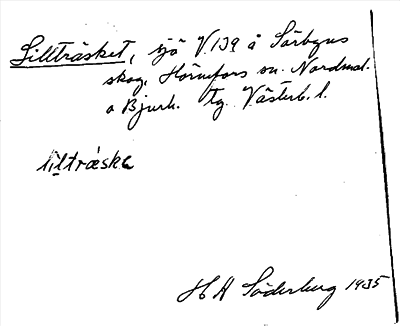 Lillträsket, sjö V.139 å Sörbyns
skog, Hörnefors sn. Nordmal.
o Bjurh. tg. Västerb. l.
lıltrǽska
H A Söderberg 1935